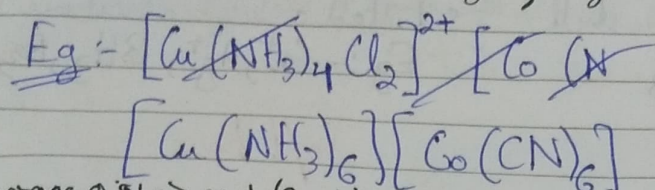 Eg :- [Cu (NH3)4 Cl2]2+ [Co CN
[Cu (NH3)6] [Co (CN)6]